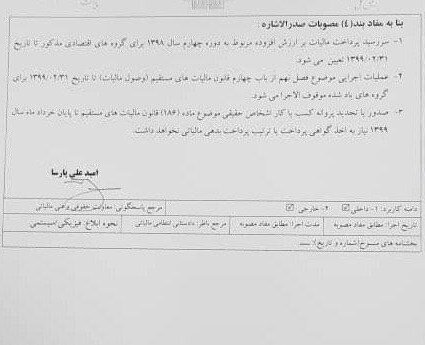 بنا به مفاد بند (٤) مصوبات صدرالاشاره
١- سررسید پرداخت مالیات بر ارزش افزوده مربوط به دوره چهارم سال ١٣٩٨ برای گروه های اقتصادی مذکور تا تاریخ
١٣٩٩/٠٢/٣١ تعیین می شود.
٢- عملیات اجرایی موضوع فصل نهم از باب چهارم قانون مالیات های مستقیم (وصول مالیات) تا تاریخ ١٣٩٩/٠٢/٣١ برای
گروه های یاد شده موقوف الاجرا می شود.
٣- صدور یا تجدید پروانه کسب یا کار اشخاص حقیقی موضوع ماده (١٨٦) قانون مالیات های مستقیم تا پایان خرداد ماه سال
١٣٩٩ نیاز به اخذ گواهی پرداخت یا ترتیب پرداخت بدهی مالیاتی نخواهد داشت.
امید علی پارسا
دامنه کاربرد: ١- داخلی ☑ ٢- خارجی ☑ مرجع پاسخگویی: معاونت حقوقی و فنی مالیاتی
تاریخ اجرا: مطابق مفاد مصوبه مدت اجرا: مطابق مفاد مصوبه مرجع ناظر: دادستانی انتظامی مالیاتی نحوه ابلاغ: فیزیکی/سیستمی
بخشنامه های منسوخ (شماره و تاریخ): ـــ